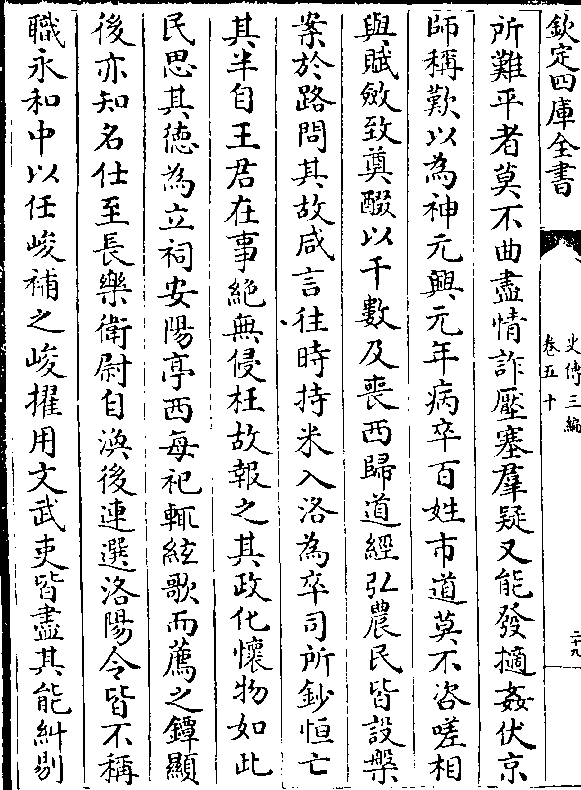 欽定四庫全書
史傳三編
卷五十
二十九
所難平者莫不曲盡情詐壓塞羣疑又能發擿姦伏京
師稱歎以為神元興元年病卒百姓市道莫不咨嗟相
與賦斂致奠醊以千數及喪西歸道經弘農民皆設槃
案於路問其故咸言往時持米入洛為卒司所鈔恒亡
其半自王君在事絶無侵枉故報之其政化懷物如此
民思其徳為立祠安陽亭西每祀輒絃歌而薦之鐔顯
後亦知名仕至長樂衛尉自渙後連選洛陽令皆不稱
職永和中以任峻補之峻擢用文武吏皆盡其能糾剔